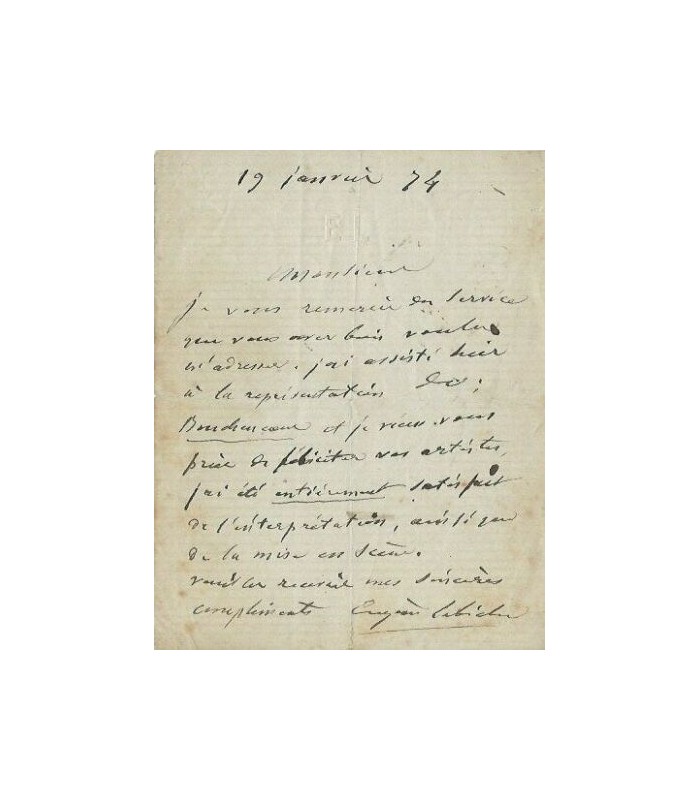 19 janvier 74
Monsieur
je vous remercie du service
que vous avez bien voulu
m'adresser. j'ai assisté hier
à la représentation de:
Doit-on le dire
et je viens vous
prier de féliciter vos artistes,
j'ai été entièrement satisfait
de l'interprétation, ainsi que
de la mise en scène.
veuillez recevoir mes sincères
compliments Eugène Labiche